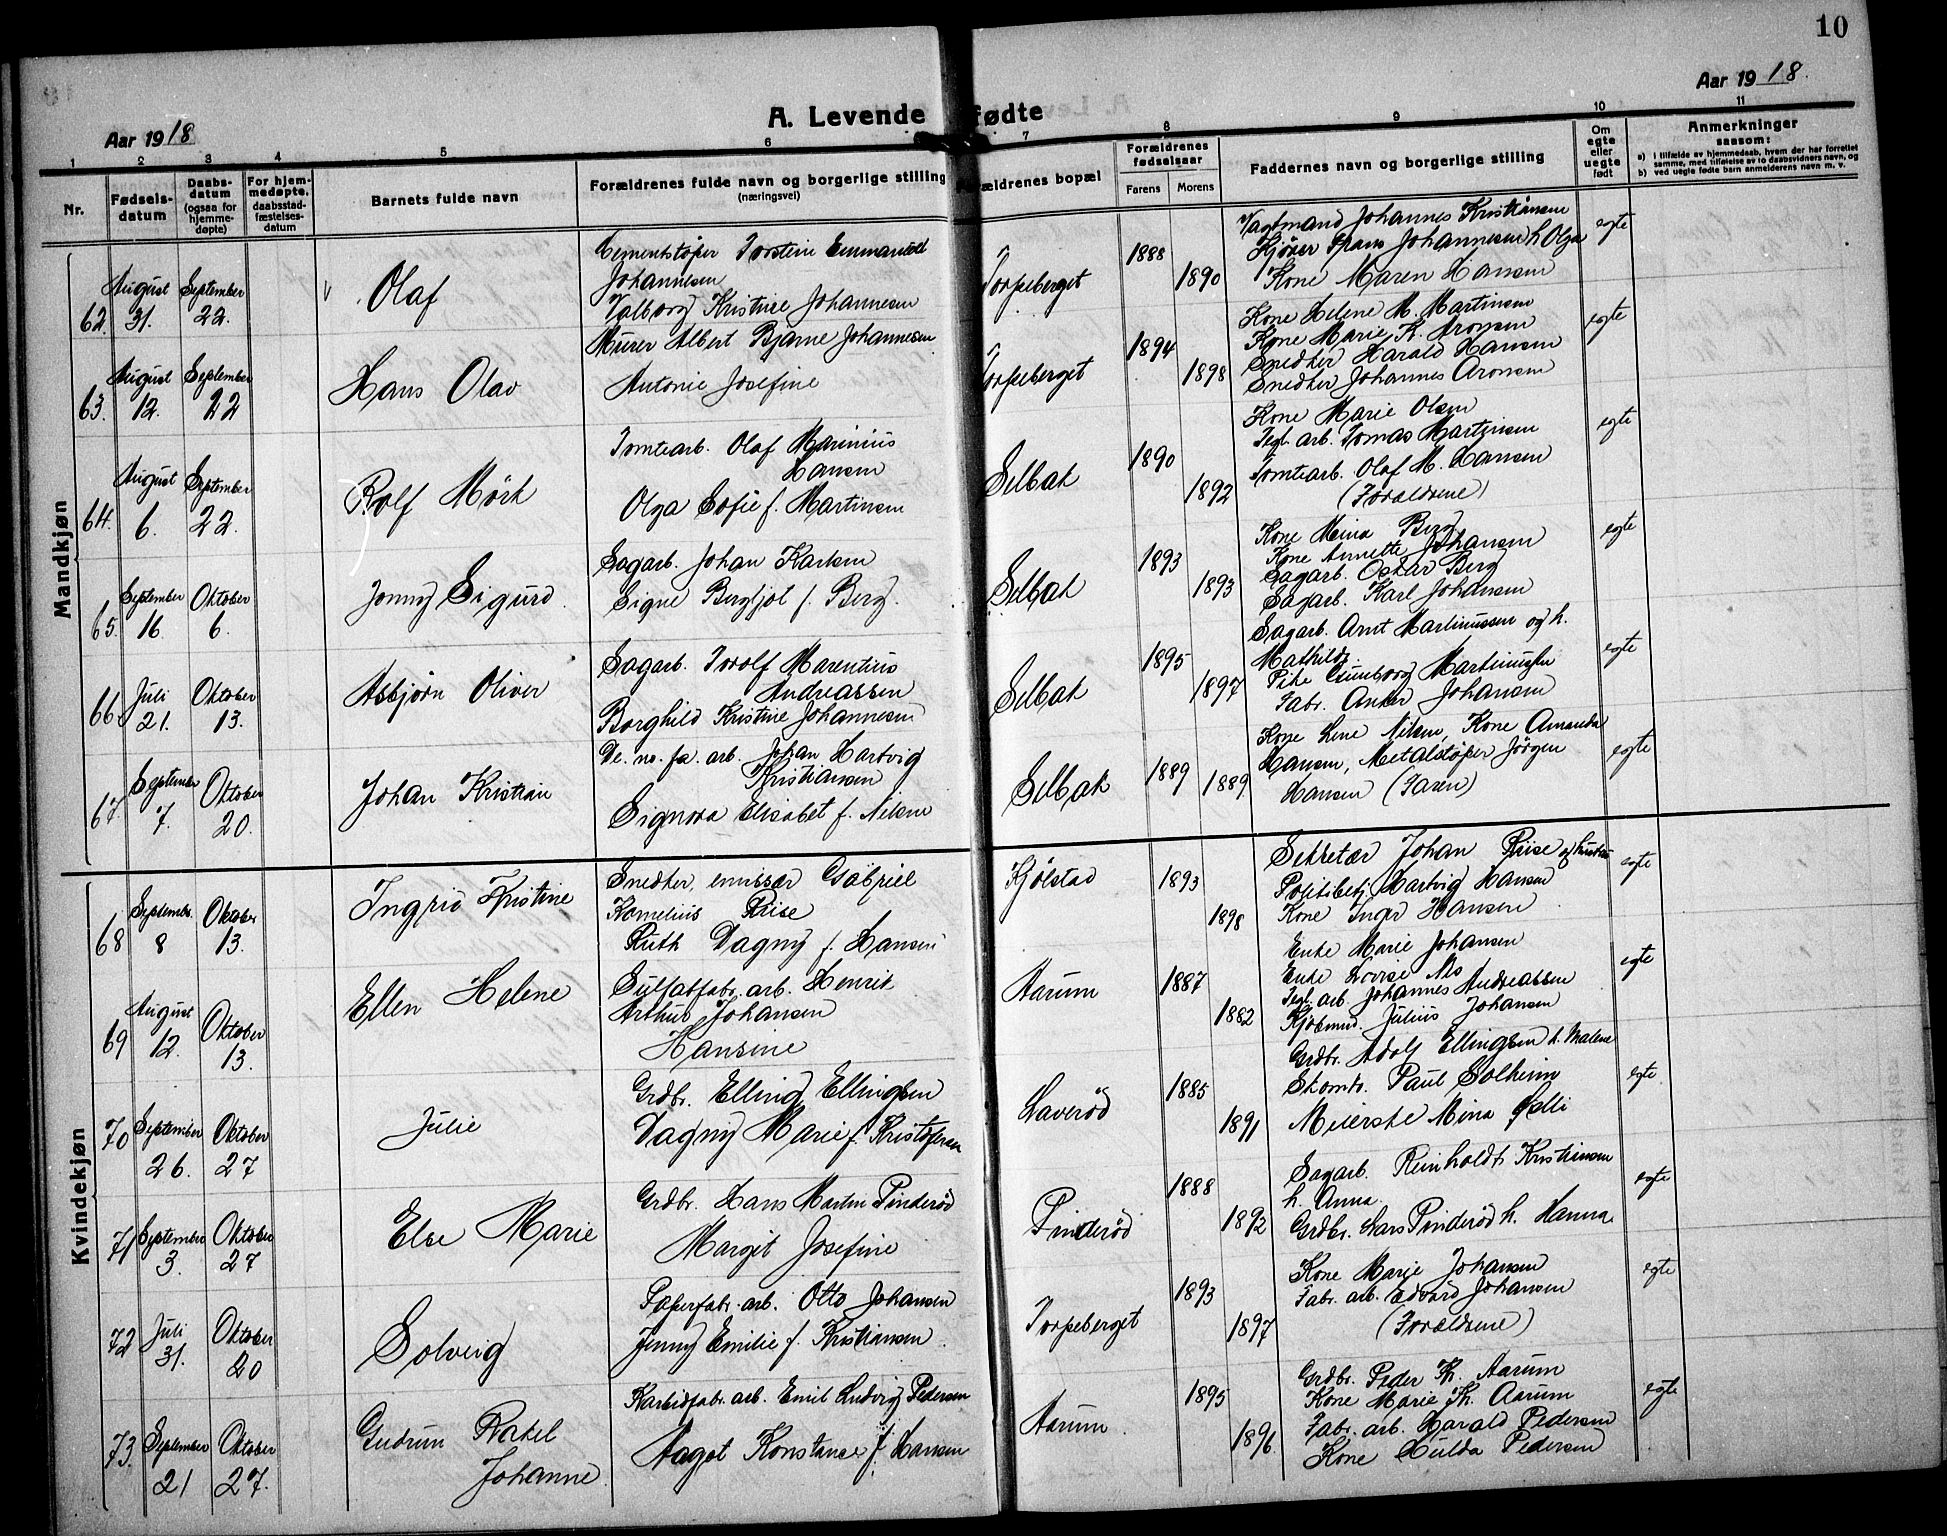 10
Aar 1918
Aar 1918.
A. Levende fødte
1 2 3 4 5 6 7 8 9 10 11
Nr.
Fødsels-
datum
Daabs-
datum
(ogsaa for
hjemme-
døpte)
For hjem-
medøpte,
daabsstad-
fæstelses-
datum
Barnets fulde navn
Forældrenes fulde navn og borgerlige stilling
(næringsvei)
ældrenes bopæl
Forældrenes
fødselsaar
Farens
Morens
Faddernes navn og borgerlige stilling
Om
egte
eller
uegte
født
Anmerkninger
saasom:
a) i tilfælde av hjemmedaab, hvem der har forrettet
samme, med tilføielse av to daabsvidners navn, og
b) ved uegte fødte barn anmelderens navn m. v.
Mandkjøn
62. August 31. September 22. Olaf
Cementstøper Torstein Emmanuel
Johannesen
Valborg Kristine Johannesen
Torpeberget 1888 1890
Vagtmand Johannes Kristiansen
Kjører Johannesen h. Olga
Kone Maren Hansen
egte
63. August 12. September 22 Hans Olav
Murer Albert Bjarne Johannesen
Antonie Josefine
Torpeberget 1894 1898
Kone Helene M. Martinsen
Kone Marie K. Aronsen
Snedker Harald Hansen
Snedker Johannes Aronsen
egte
64. August 6. September 22. Rolf Mörk
Tomtearb. Olaf Marinius
Hansen
Olga Sofie f. Martinsen
Selbak 1890 1892
Kone Marie Olsen
Tegl. arb. Tomas Martinsen
Tomtearb. Olaf M. Hansen
(Forældrene)
egte
65. September 16. Oktober 6. Jonny Sigurd
Sagarb. Johan Karlsen
Signe Bergljot f. Berg.
Selbak 1893 1893
Kone Mina Berg
Kone Annette Johansen
Sagarb. Oskar Berg
Sagarb. Karl Johansen
egte
66. Juli 21. Oktober 13. Asbjørn Oliver
Sagarb. Torolf Marentius
Andreassen
Borghild Kristine Johannesen
Selbak 1895 1897
Sagarb. Arnt Martinussen og h.
Mathilde
Pike Martinussen
Fabr. Anker Johansen
egte
67. September 7. Oktober 20. Johan Kristian
De. no. fa. arb. Johan Hartvig
Kristiansen
Signora Elisabet f. Nilsen
Selbak 1889 1889
Kone Lene Nilsen, Kone Amanda
Hansen, Metalstøper Jörgen
Hansen (Faren)
egte
Kvindekjøn
68 Septembr. 8 Oktober 13. Ingrid Kristine
Snedker, emissær Gabriel
Kornelius Riise
Ruth Dagny f. Hansen
Kjölstad 1893 1898
Sekretær Johan Riise og hustru
Politibetj. Hartvig Hansen
Kone Inger Hansen
egte
69 August 12. Oktober 13. Ellen Helene
Sulfatfabr. arb. Henrik
Arthur Johansen
Hansine
Aarum 1887 1882
Enke Marie Johansen
Enke Lovise
Tegl. arb. Johannes Andreassen
Kjøbmd. Julius Johansen
egte
70 September 26. Oktober 27 Julie
Grdbr. Elling Ellingsen
Dagny Marie f. Kristofersen
Laveröd 1885 1891
Grdbr. Adolf Ellingsen h. Malene
Skomk. Paul Solheim
Meierske Mina
egte
71 September 3. Oktober 27 Else Marie
Grdbr. Hans Martin Pinderöd
Margit Josefine
Pinderöd 1888 1892
Sagarb. Reinholdt Kristiansen
h. Anna.
Grdbr. Lars Pinderöd h. Hanna
egte
72 Juli 31. Oktober 20 Solveig
Papirfabr. arb. Otto Johansen
Jenny Emilie f. Kristiansen
Torpeberget 1893 1897
Kone Marie Johansen
Fabr. arb. Edvard Johansen
(Forældrene)
egte
73. September 21 Oktober 27. Gudrun Rakel
Johanne
Karbidfabr. arb. Emil Ludvig Pedersen
Aagot Konstanse f. Hansen
Aarum 1895 1896
Grdbr. Peder Th. Aarum
Kone Marie Th. Aarum
Fabr. arb. Harald Pedersen
Kone Hulda Pedersen
egte